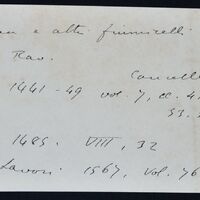 e altri fiumicelli
Rav.
Cancell
1441-49 vol. 7, cc. 4
53.
1485. VIII, 32
Lavori 1567, vol. 76